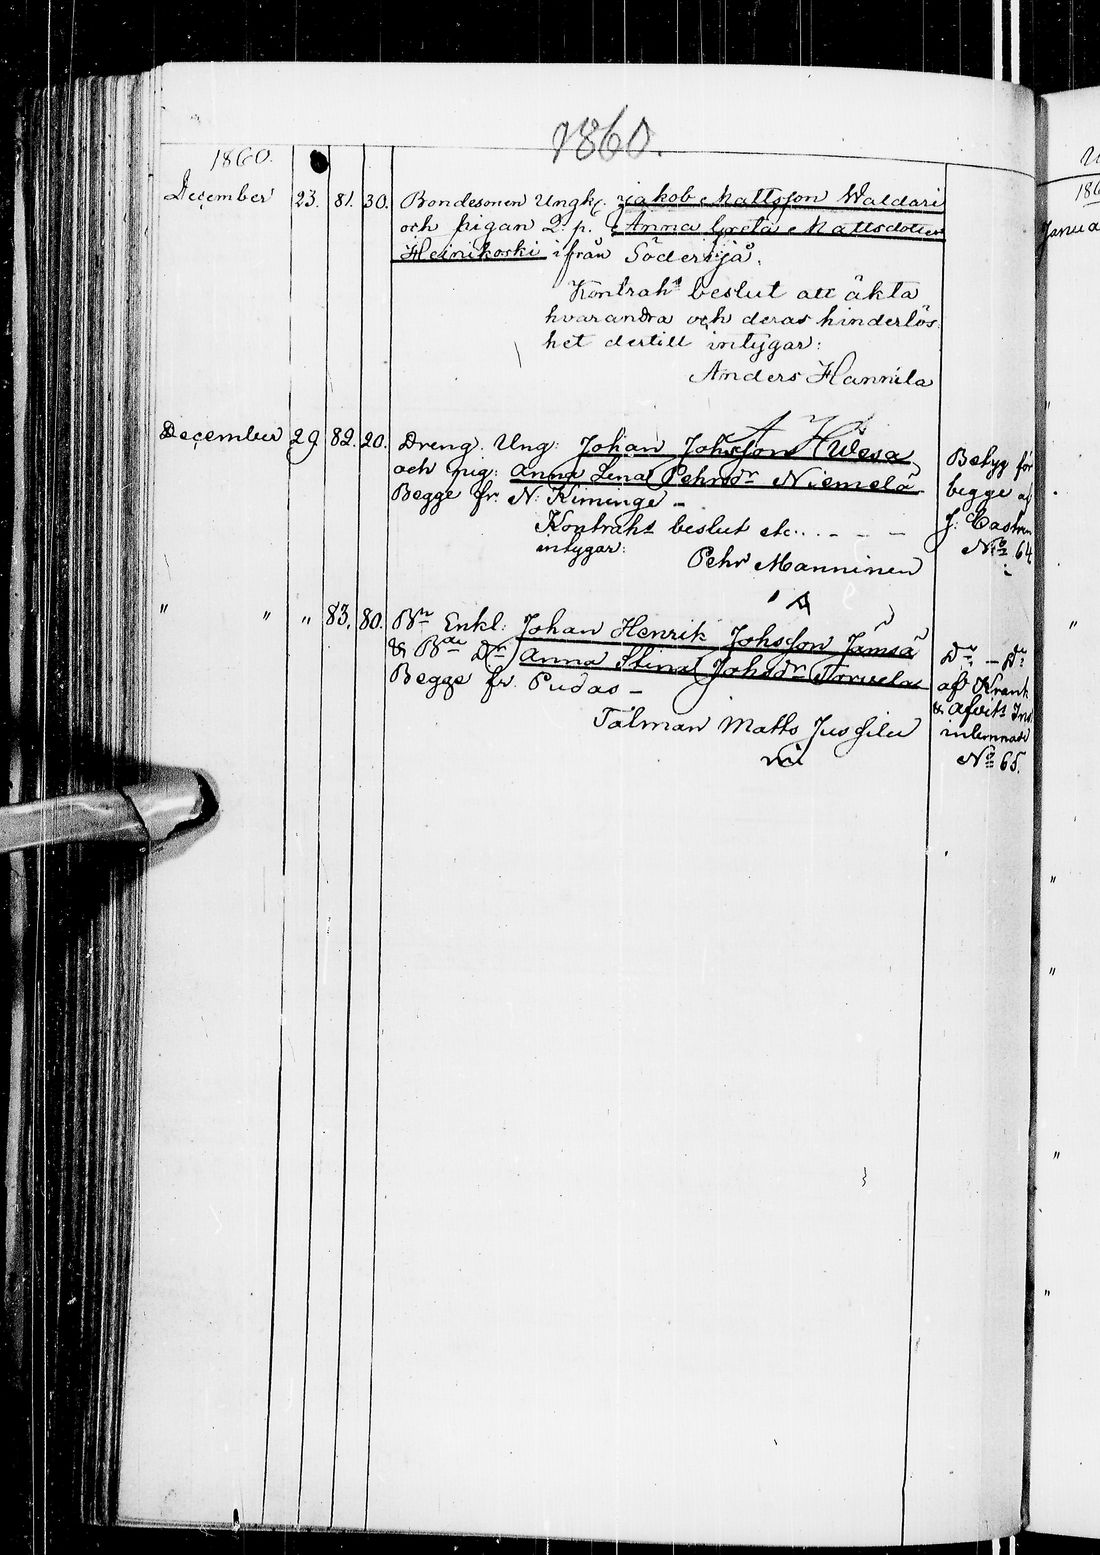 1860.
1860.
December 23. 81. 30. Bondesonen Ungk. Jakob Mattsson Waldari
och pigan Q. p. Anna Greta Mattsdotter
Heinikoski ifrån Söderijå.
Kontrahs beslut att äkta
hvarandra och deras hinderlös
het dertill intygar:
Anders Hannila
December 29 82. 20. Dreng. Ung: Johan Johsson
och pig: Anna Lena Pehrsdr Niemelä
Begge fr. N. Kiminge –
Kontrahs beslut etc. . – – –
intygar:
Pehr Manninen
Betyg för
begge af
J. Castren
No 64
" " " 83. 80. Bn Enkl: Johan Henrik Johsson Jämsä
& Bde Dr Anna Stina Johsdr Torvela
Begge fr. Pudas –
Talman Matts Jussila
Do – Do
af Krank
& Afvits
inlemnade
No 65.
Janua
"
"
"
"
"